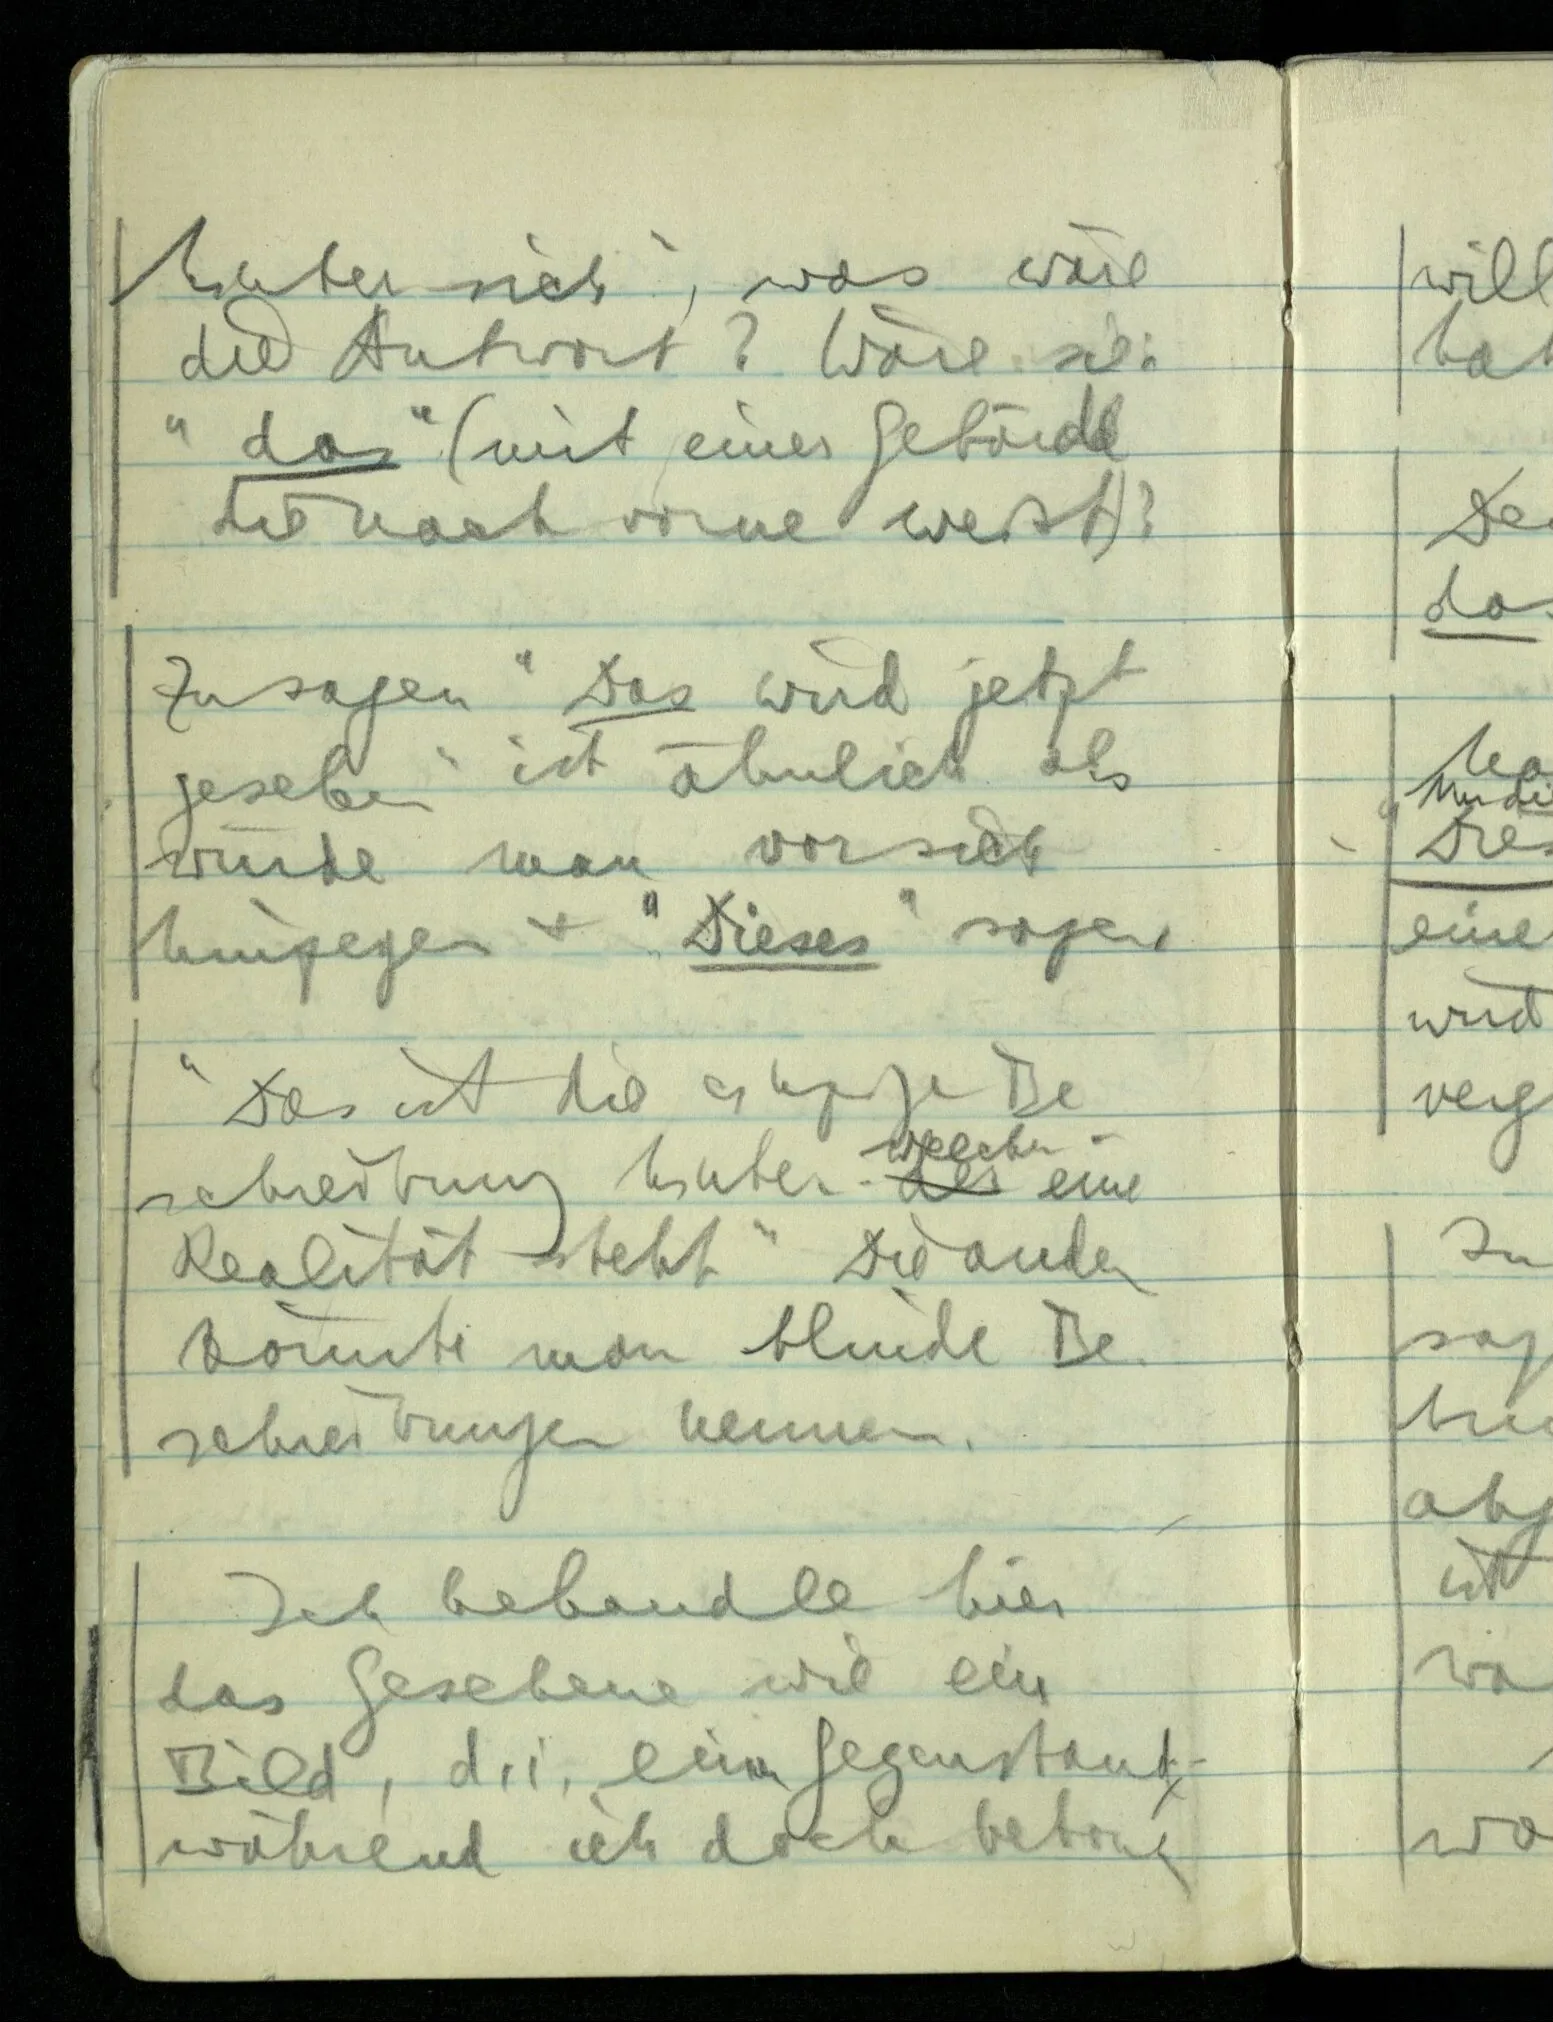 hinter sich", was wäre
die Antwort? Wäre sie:
"das" (mit einer Gebärde
die nach vorne weist)?
Zu sagen "Das wird jetzt
gesehen" ist ähnlich als
würde man vor sich
hinzeigen + "Dieses" sagen.
"Das ist die einzige Be
schreibung hinter welcher
der eine
Realität steht" Die andern
könnte man blinde Be
schreibungen nennen.
Ich behandle hier
das Gesehene wie ein
Bild, d.i. einen Gegenstand,
während ich doch betone
will
hat
das
Dies
eine
wird
verg
sag
abg
ist
wa